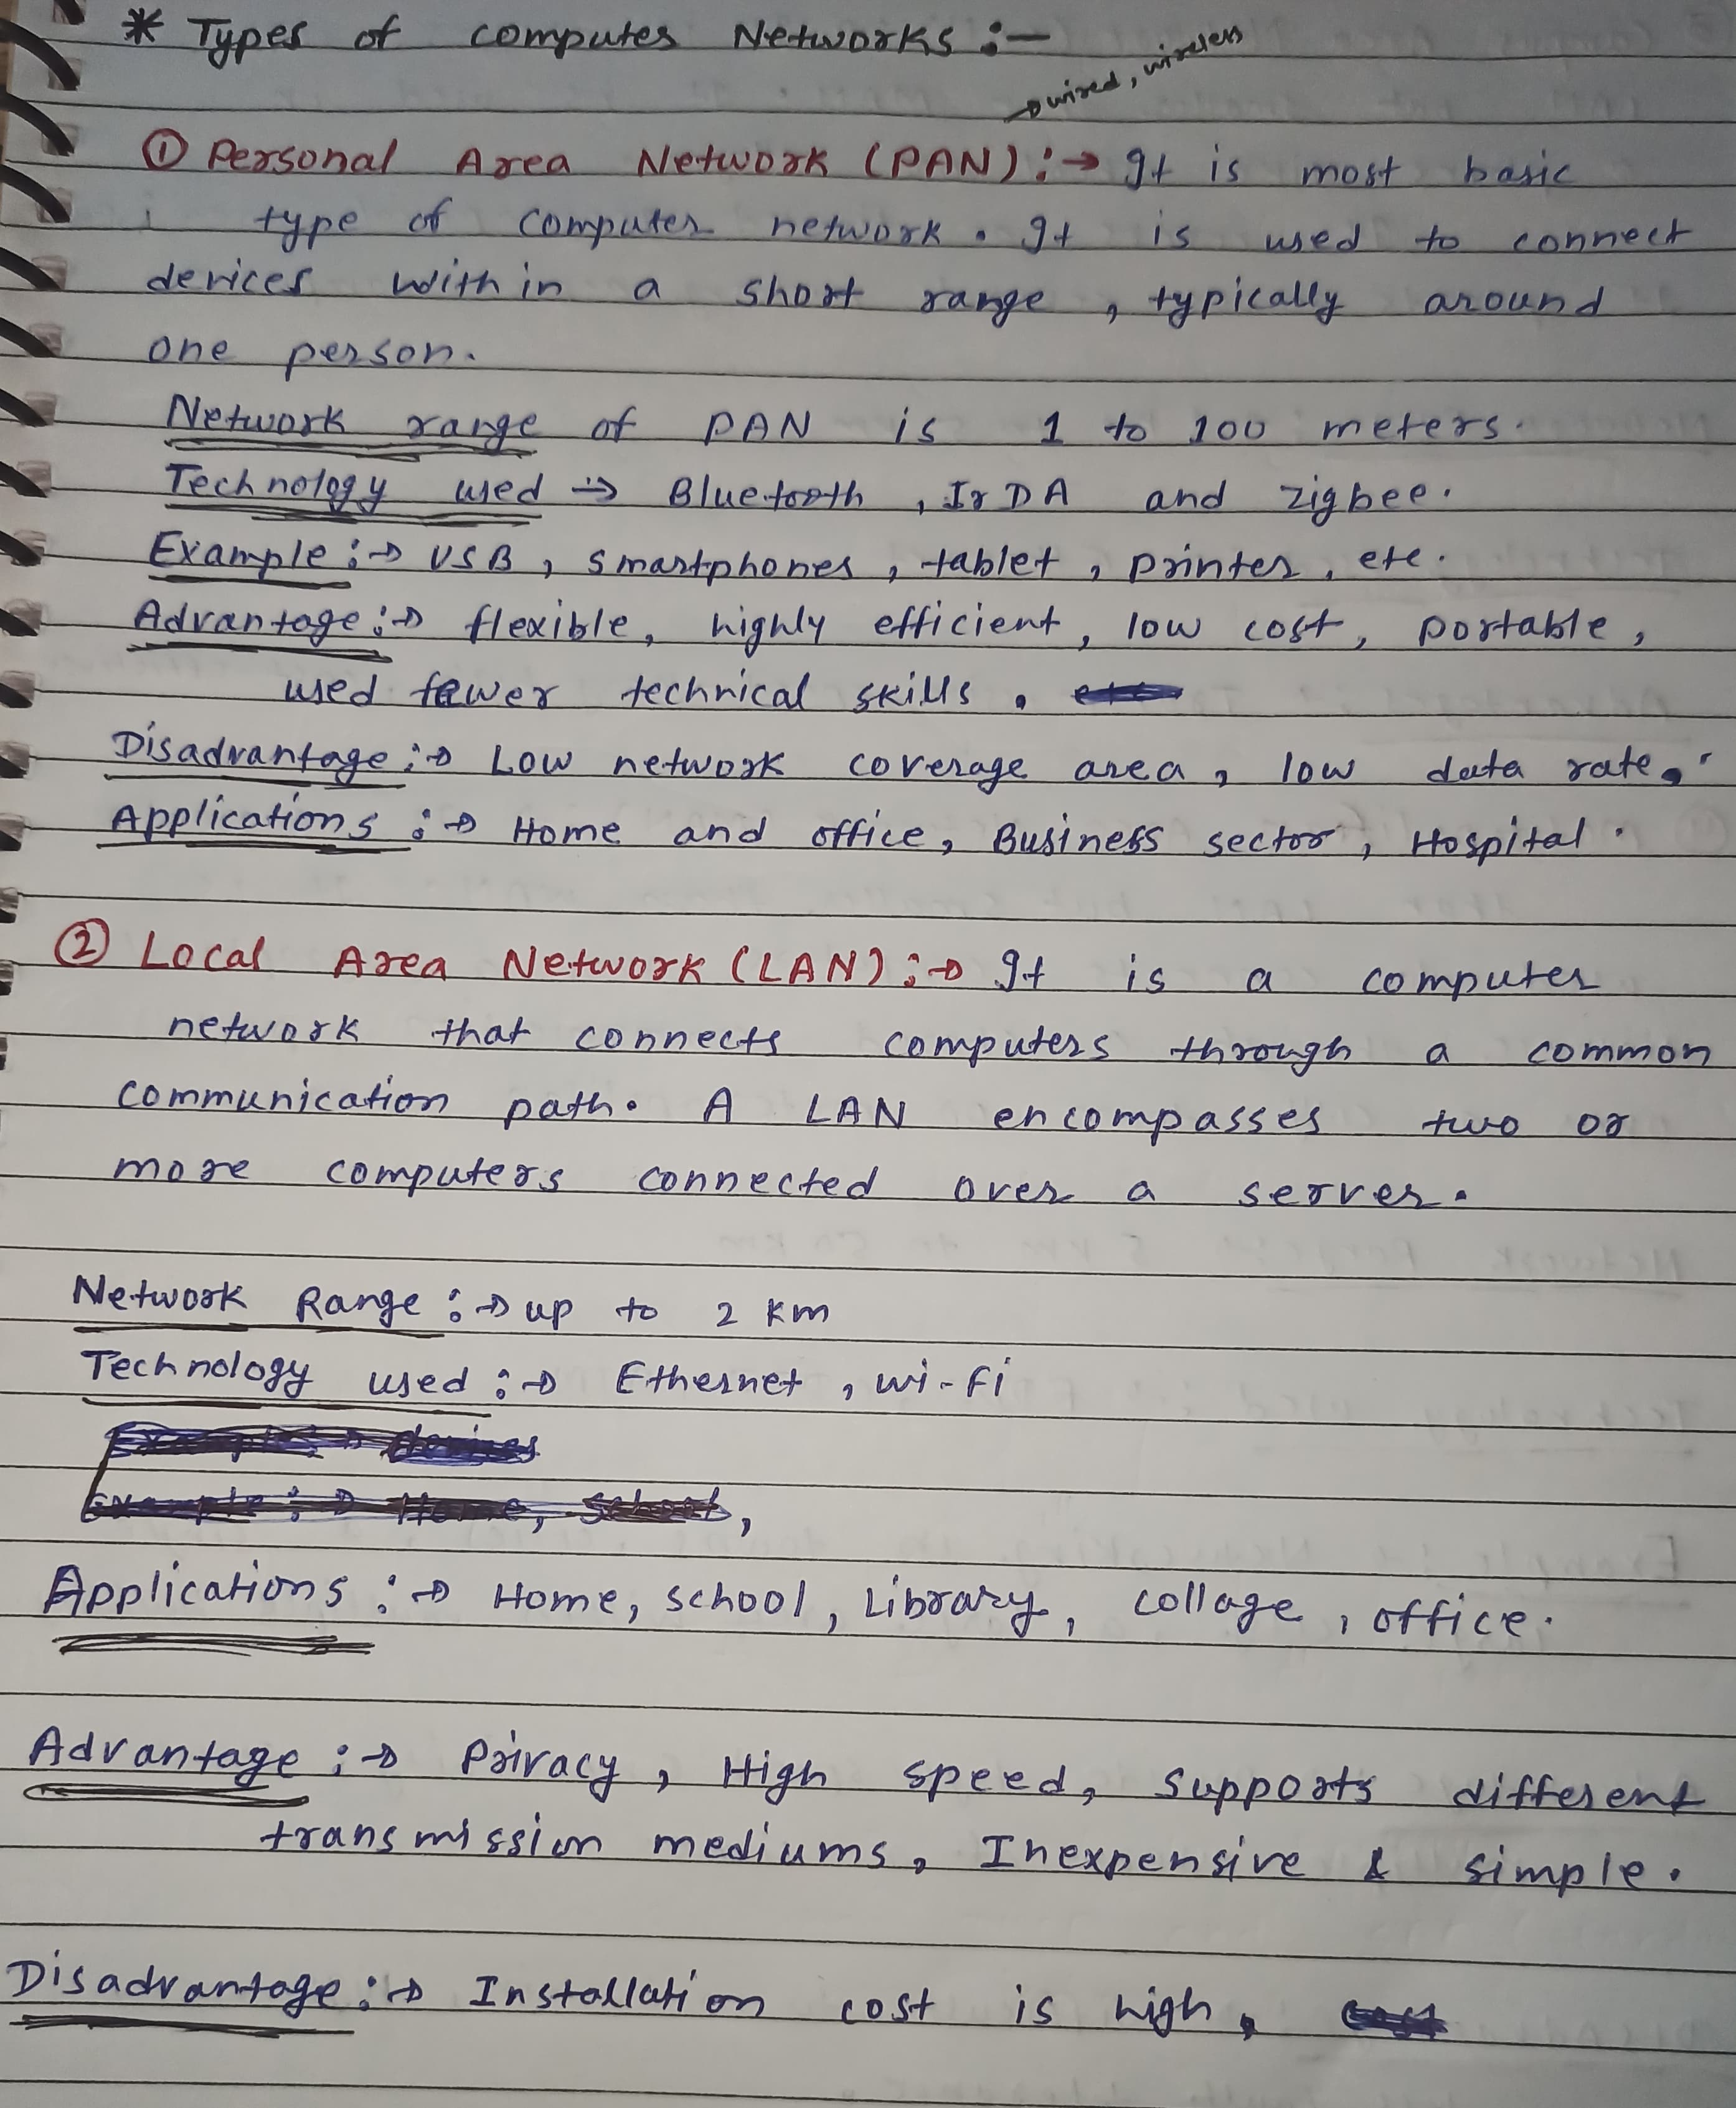 * Types of computer Networks :-
→ wired, wireless
① Personal Area Network (PAN) :→ It is most basic
type of computer network. It is used to connect
devices within a short range, typically around
one person.
Network range of PAN is 1 to 100 meters.
Technology used → Bluetooth, IrDA and zigbee.
Example :→ USB, smartphones, tablet, printer, etc.
Advantage :→ flexible, highly efficient, low cost, portable,
used fewer technical skills.
Disadvantage :→ Low network coverage area, low data rate.
Applications :→ Home and office, Business sector, Hospital.
② Local Area Network (LAN) :→ It is a computer
network that connects computers through a common
communication path. A LAN encompasses two or
more computers connected over a server.
Network Range :→ up to 2 km
Technology used :→ Ethernet, wi-fi
Applications :→ Home, school, Library, collage, office.
Advantage :→ Privacy, High speed, supports different
transmission mediums, Inexpensive & simple.
Disadvantage :→ Installation cost is high,